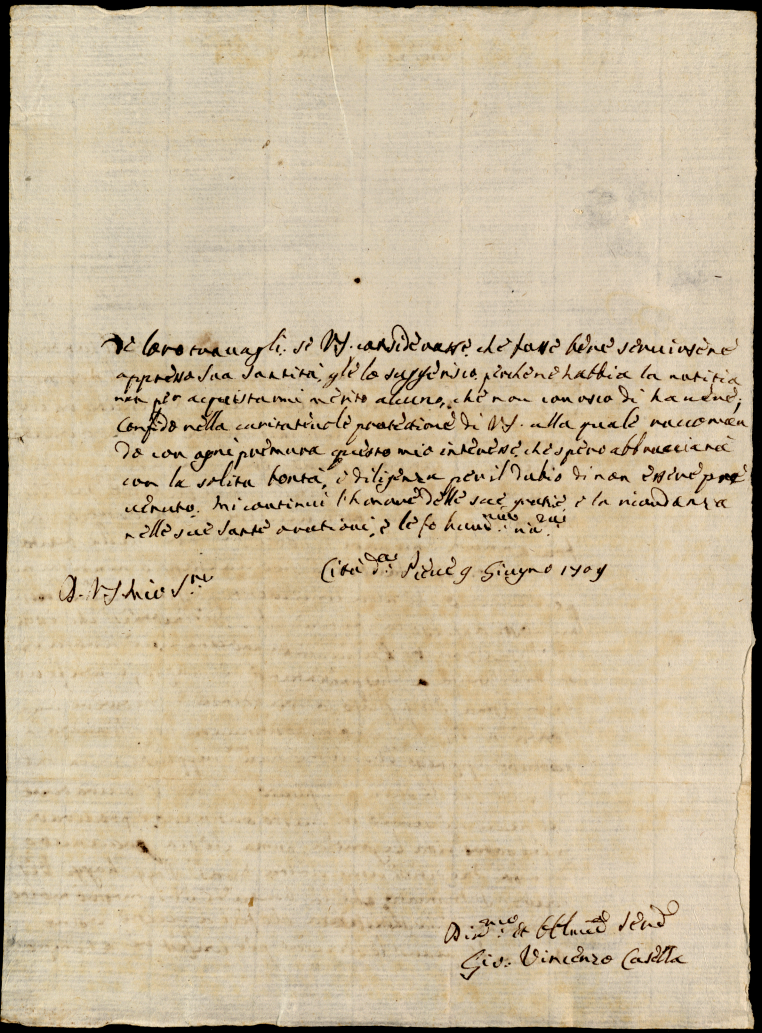 de loro travagli. se VS. considerasse, che fosse bene servirsene
appresso Sua Santità, glè lo suggerisco, perche ne habbia la notitia
non per acquistarmi merito alcuno, che non conosco di havere;
Confido nella caritatevole protettione di VS. alla quale raccoman
do con ogni premura questo mio interesse, che spero abbracciarà
con la solita bontà, e diligenza per il dubio di non essere pre
venuto. Mi continui l'honore delle sue gratie, e la ricordanza
nelle sue sante orationi, e le fo hum.ma riv.za
Città d.a Pieve 9 Giugno 1709
D. VS Mio S.re
Div.mo et Obl.mo Ser.e
Gio. Vincenzo Casella